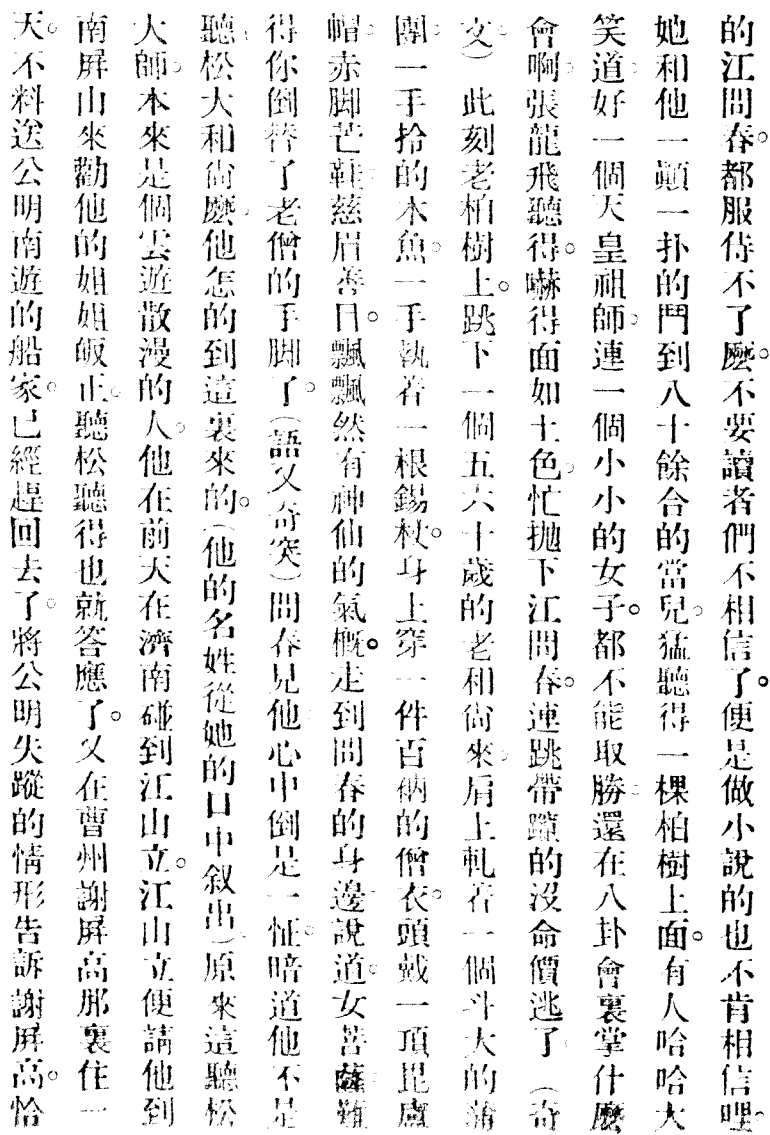 的江問春。都服侍不了麼。不要讀者們不相信了。便是做小說的也不肯相信哩。
她和他一顚一扑的鬥到八十餘合的當兒。猛聽得一棵柏樹上面。有人哈哈大
笑道。好一個天皇祖師。連一個小小的女子。都不能取勝。還在八卦會裏掌什麼
會啊。張龍飛聽得。嚇得面如土色。忙抛下江問春。連跳帶躥的沒命價逃了。(奇
文)此刻老柏樹上。跳下一個五六十歲的老和尙來。肩上軋着一個斗大的蒲
團。一手拎的木魚。一手執着一根錫杖。身上穿一件百衲的僧衣。頭戴一頂毘盧
帽。赤脚芒鞋。慈眉善目。飄飄然有神仙的氣槪。走到問春的身邊。說道。女菩薩。難
得你倒替了老僧的手脚了。(語又奇突)問春見他。心中倒是一怔。暗道。他不是
聽松大和尙麼。他怎的到這裏來的。(他的名姓從她的口中叙出)原來這聽松
大師。本來是個雲遊散漫的人。他在前天在濟南碰到江山立。江山立便請他到
南屏山來勸他的姐姐皈正。聽松聽得也就答應了。又在曹州謝屏高那裏住一
天。不料送公明南遊的船家。已經趕回去了。將公明失蹤的情形告訴謝屏高。恰